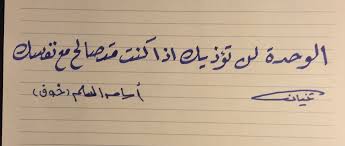 الوحدة لن تؤذيك اذا كنت متصالح مع نفسك
أسامه المسلم (خوف)